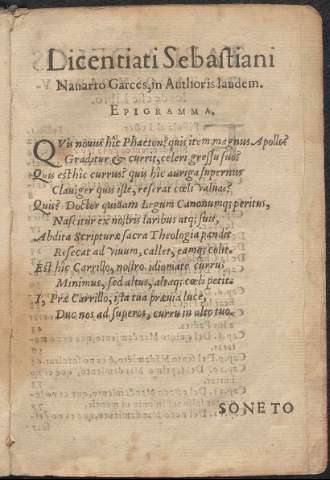 Licentiati Sebastiani
Nauarro Garces, in Authoris laudem.
EPIGRAMMA.
QVis nouus hic Phaeton? quis item magnus Apollo?
Graditur & currit, celeri gressu suo?
Quis est hic currus? quis hic auriga supernus
Clauiger quis iste, reserat cœli valuas?
Quis? Doctor quidam Legum Canonumq; peritus,
Nascitur ex nostris laribus atq; suis,
Abdita Scripturæ sacra Theologia pandit
Resecat ad viuum, callet, eamq; colit.
Est hic Carrillo, nostro idiomate currus
Minimus, sed altus, altaq; cœli petit.
I, Præ Currillo, ista tua præuia luce,
Duc nos ad superos, curru in alto tuo.
SONETO